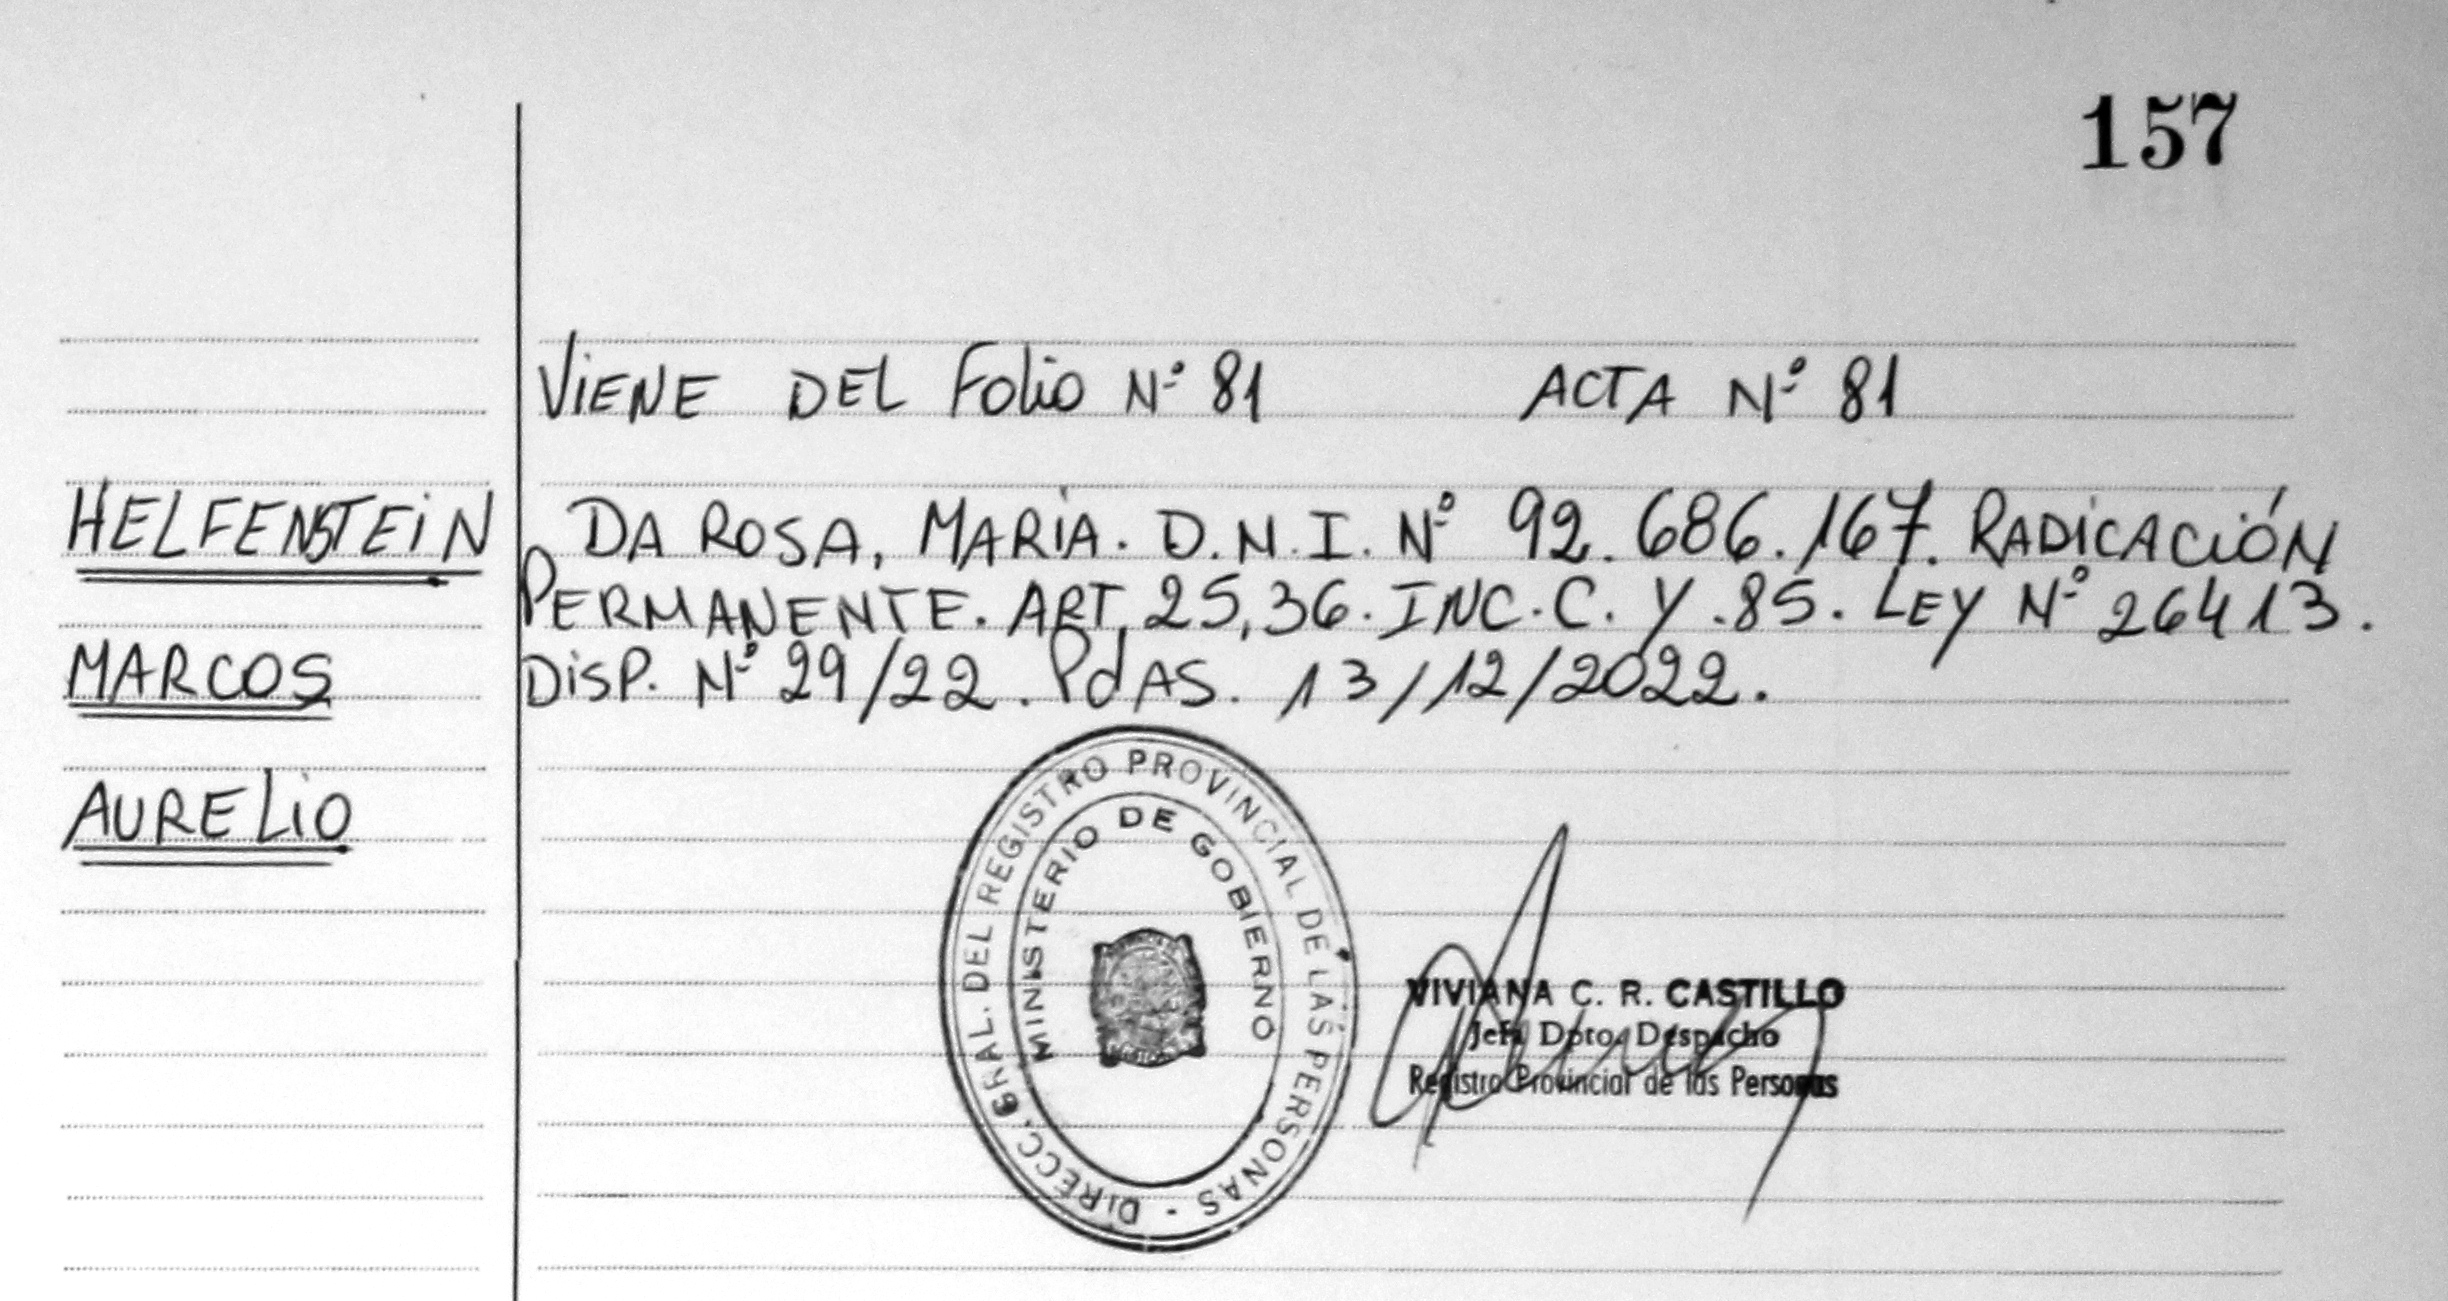 157
VIENE DEL Folio Nº 81 ACTA Nº 81
HELFENSTEIN
MARCOS
AURELIO
DA ROSA, MARIA. D.N.I. Nº 92.686.167. RADICACIÓN
PERMANENTE. ART, 25,36. INC.C. Y .85. LEY Nº 26413.
DISP. Nº 29/22. PdAS. 13/12/2022.
DIRECC. GRAL. DEL REGISTRO PROVINCIAL DE LAS PERSONAS -
MINISTERIO DE GOBIERNO
VIVIANA C. R. CASTILLO
Jefa Dpto. Despacho
Registro Provincial de las Personas